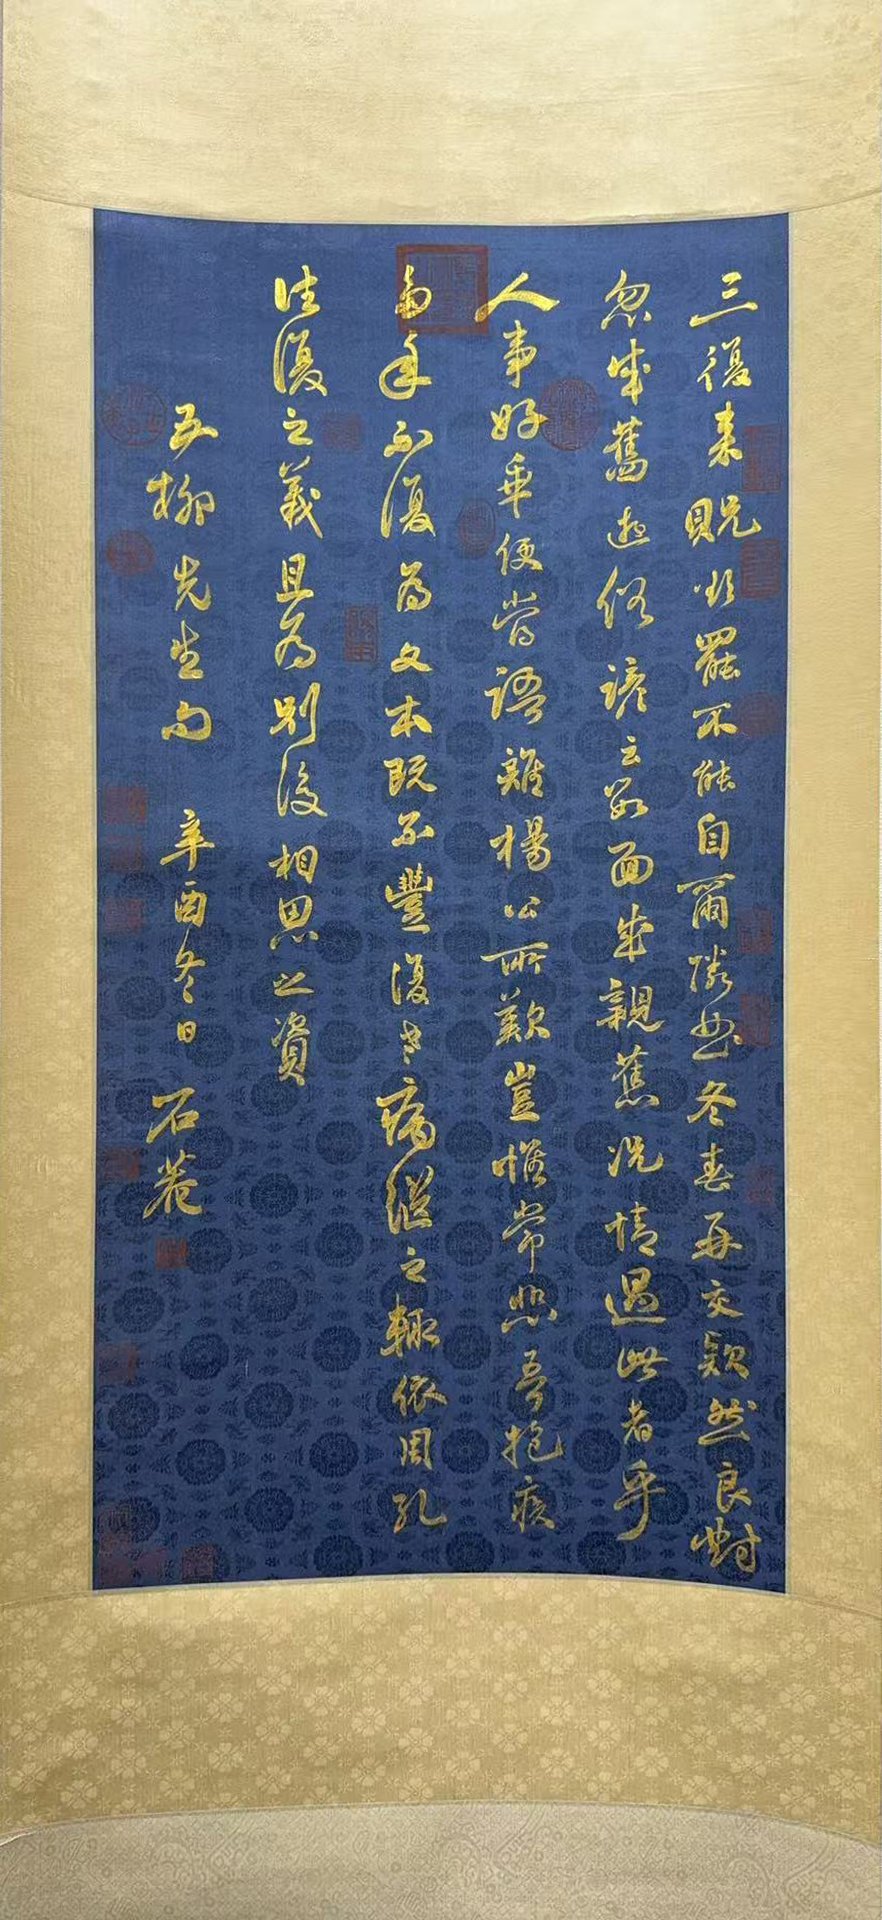 三復来貺欲罷不能自爾隣曲冬春再交欵然良對
忽成舊遊俗諺云數面成親舊況情過此者乎
人事好乖便當語離楊公所歎豈惟常悲吾抱疾
多年不復為文本既不豐復老病繼之輒依周孔
往復之義且為別後相思之資
五柳先生句 辛酉冬日 石菴